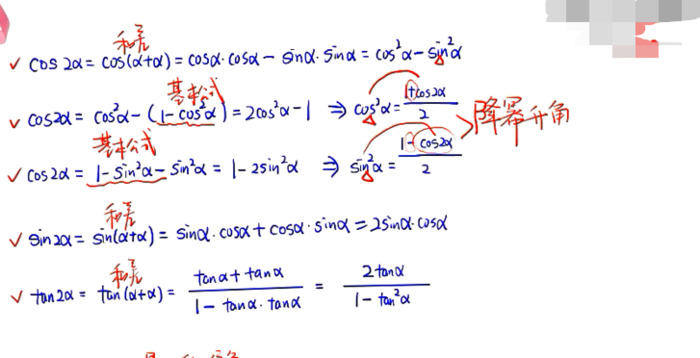 和差
✓ cos2α = cos(α+α) = cosα·cosα − sinα·sinα = cos²α − sin²α
基本公式
✓ cos2α = cos²α − (1−cos²α) = 2cos²α − 1 ⇒ cos²α = (1+cos2α)/2
降幂升角
基本公式
✓ cos2α = 1−sin²α − sin²α = 1−2sin²α ⇒ sin²α = (1−cos2α)/2
和差
✓ sin2α = sin(α+α) = sinα·cosα + cosα·sinα = 2sinα·cosα
和差
✓ tan2α = tan(α+α) = (tanα+tanα)/(1−tanα·tanα) = 2tanα/(1−tan²α)